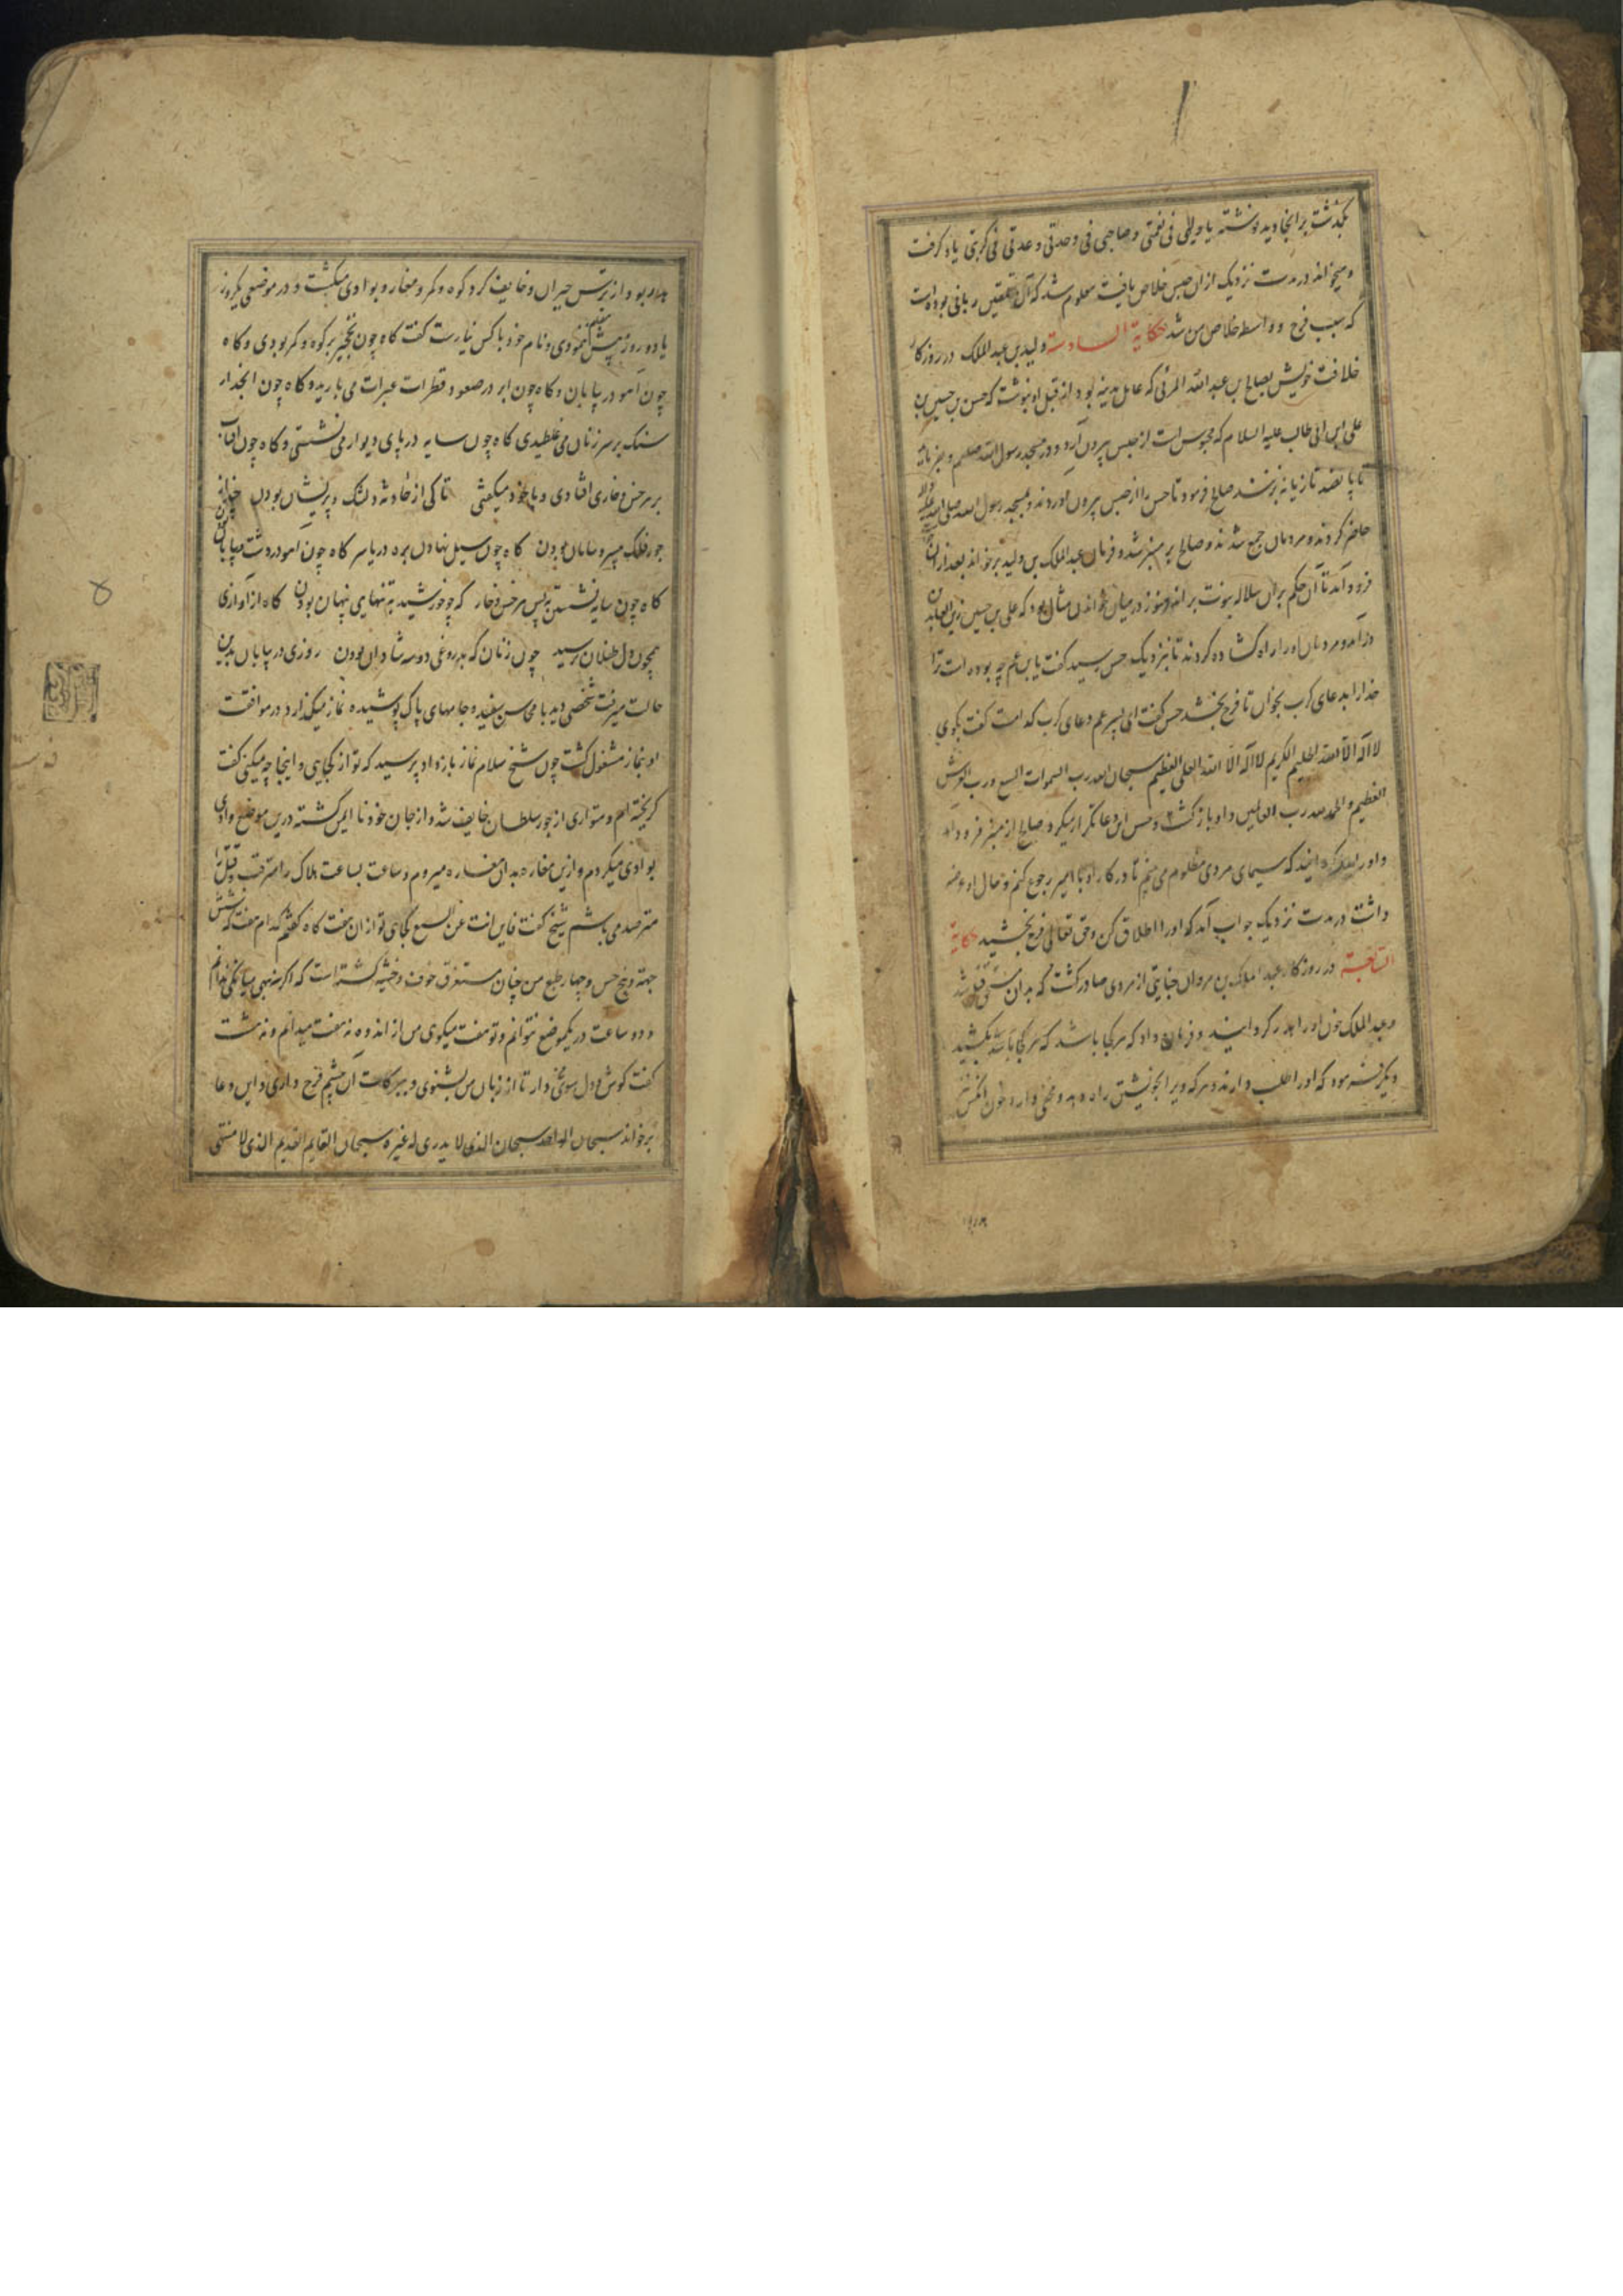 بگذشت بر انجا دید نوشته یا ولیی فی نعمتی و صاحبی فی وحدتی و عدتی فی کربتی یاد کرفت
و میخواند در مدت نزدیک ازان حبس خلاص یافت معلوم شد که آن تلقین ربانی بوده است
که سبب فرج و واسطه خلاص من شد حکایة السادسة ولید بن عبد الملک در روزکار
خلافت خویش بصالح بن عبد الله المزنی که عامل مدینه بود از قبل او نبوشت که حسن بن حسین بن
علی ابن ابی طالب علیه السلام که محبوس است از حبس بیرون آرد و در مسجد رسول الله صلعم و بفرمای
تا پانصد تازیانه بزنند صالح فرمود تا حسن را از حبس بیرون اوردند و بمسجد رسول الله صلی الله علیه
حاضر کردند و مردمان جمع شدند و صالح بر منبر شد و فرمان عبد الملک بن ولید برخواند بعد ازان
فرود آمد تا آن حکم بران سلاله نبوت براند و هنوز در میان خواندن مثال بود که علی بن حسین زین العابدین
در آمد و مردمان او را راه کشاده کردند تا بنزدیک حسن رسید کفت یا بن عم چه بوده است ترا
خدا را بدعای کرب بخوان تا فرج بخشد حسن کفت ای پسر عم دعای کرب کدامست کفت بکوی
لا اله الا الله الحلیم الکریم لا اله الا الله العلی العظیم سبحان الله رب السموات السبع و رب العرش
العظیم و الحمد لله رب العالمین و او بازکشت و حسن این دعا تکرار میکرد و صالح از منبر فرود آمد
و او را کفت سیمای مردی مظلوم می بینم تا در کار او با امیر رجوع کنم و حال او عرضه
داشت در مدت نزدیک جواب آمد که او را اطلاق کن و حق تعالی فرج بخشید حکایة
السابعة در روزکار عبد الملک بن مروان جنایتی از مردی صادر کشت که بدان مستحق قتل شد
و عبد الملک خون او را هدر کردانید و فرمان داد که هر کجا باشد که هر کجا یابند بکشند
و دیکر فرمود که او را طلب دارند و هر که ویرا بخویشتن راه دهد و مخفی دارد خون انکس
هدر بود و از ترس حیران و خایف کرد کوه و کمر و مغار و بوادی میکشت و در موضعی یکروز
یا دو روز بیش مقیم نبودی و نام خود با کس نیارست کفت کاه چون نخجیر بر کوه و کمر بودی و کاه
چون آهو در بیابان و کاه چون ابر در صعود و قطرات عبرات می بارید و کاه چون انحدار
سنک بر سر زنان می غلطیدی کاه چون سایه در پای دیوار می نشستی و کاه چون افتاب
بر هر خس و خاری افتادی و با خود میکفتی تا کی از حادثه دلتنک و پریشان بودن
جور فلک بیسر و سامان بودن کاه چون سیل نهادن بره دریا سر کاه چون آهو در دشت و بیابان بودن
کاه چون سایه نشستن به پس هر خس و خار که چو خورشید به تنهایی پنهان بودن کاه از آوازی
همچون دل طفلان ترسید چون زنان که بدروغی دو سه شادان بودن روزی در بیابان بدین
حالت میرفت شخصی دید با محاسن سفید و جامهای پاک پوشیده نماز میکذارد در موافقت
او بنماز مشغول کشت چون شیخ سلام نماز باز داد پرسید که تو از کجایی و اینجا چه میکنی کفت
کریخته ام و متواری از جور سلطان خایف شده و از جان خود نا ایمن کشته درین موضع وادی
بوادی میکردم و ازین مغاره بدان مغاره میروم و ساعت بساعت هلاک را مترقب و قتل را
مترصد می باشم شیخ کفت فاین انت عن السبع کجایی تو از ان هفت کاه کفتم کدام هفت که شش
جهت و پنج حس و چهار طبع من چنان مستغرق خوف و خشیه کشته است که
و دو ساعت در یکموضع نتوانم و تو هفت میکوی من از اندوه نه هفت میدانم و نه هشت
کفت کوش دل سوی من دار تا از زبان من بشنوی و ببرکات آن چشم فرج داری و این دعا
برخواند سبحان الواحد سبحان الذی لا یدری له غیره سبحان القایم القدیم الذی لا منتهی